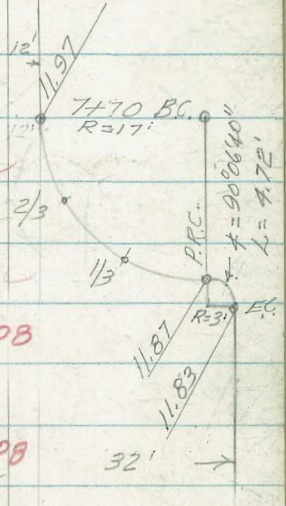 12'
11.97
7+70 B.C.
R=17'
12'
2/3
1/3
P.R.C.
4=90°06'40"
L=4.72'
R=3'
E.C.
11.87
11.83
98
98
32'